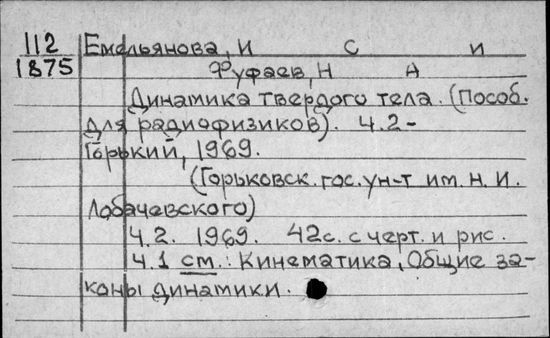 112 Емельянова, И С и
1875 Фуфаев, Н А
Динамика твердого тела. (Пособ.
для радиофизиков). Ч.2-
Горький, 1969.
(Горьковск. гос. ун-т им. Н. И.
Лобачевского)
Ч.2. 1969. 42с. с черт. и рис.
Ч.1 см.: Кинематика, Общие за-
коны динамики.